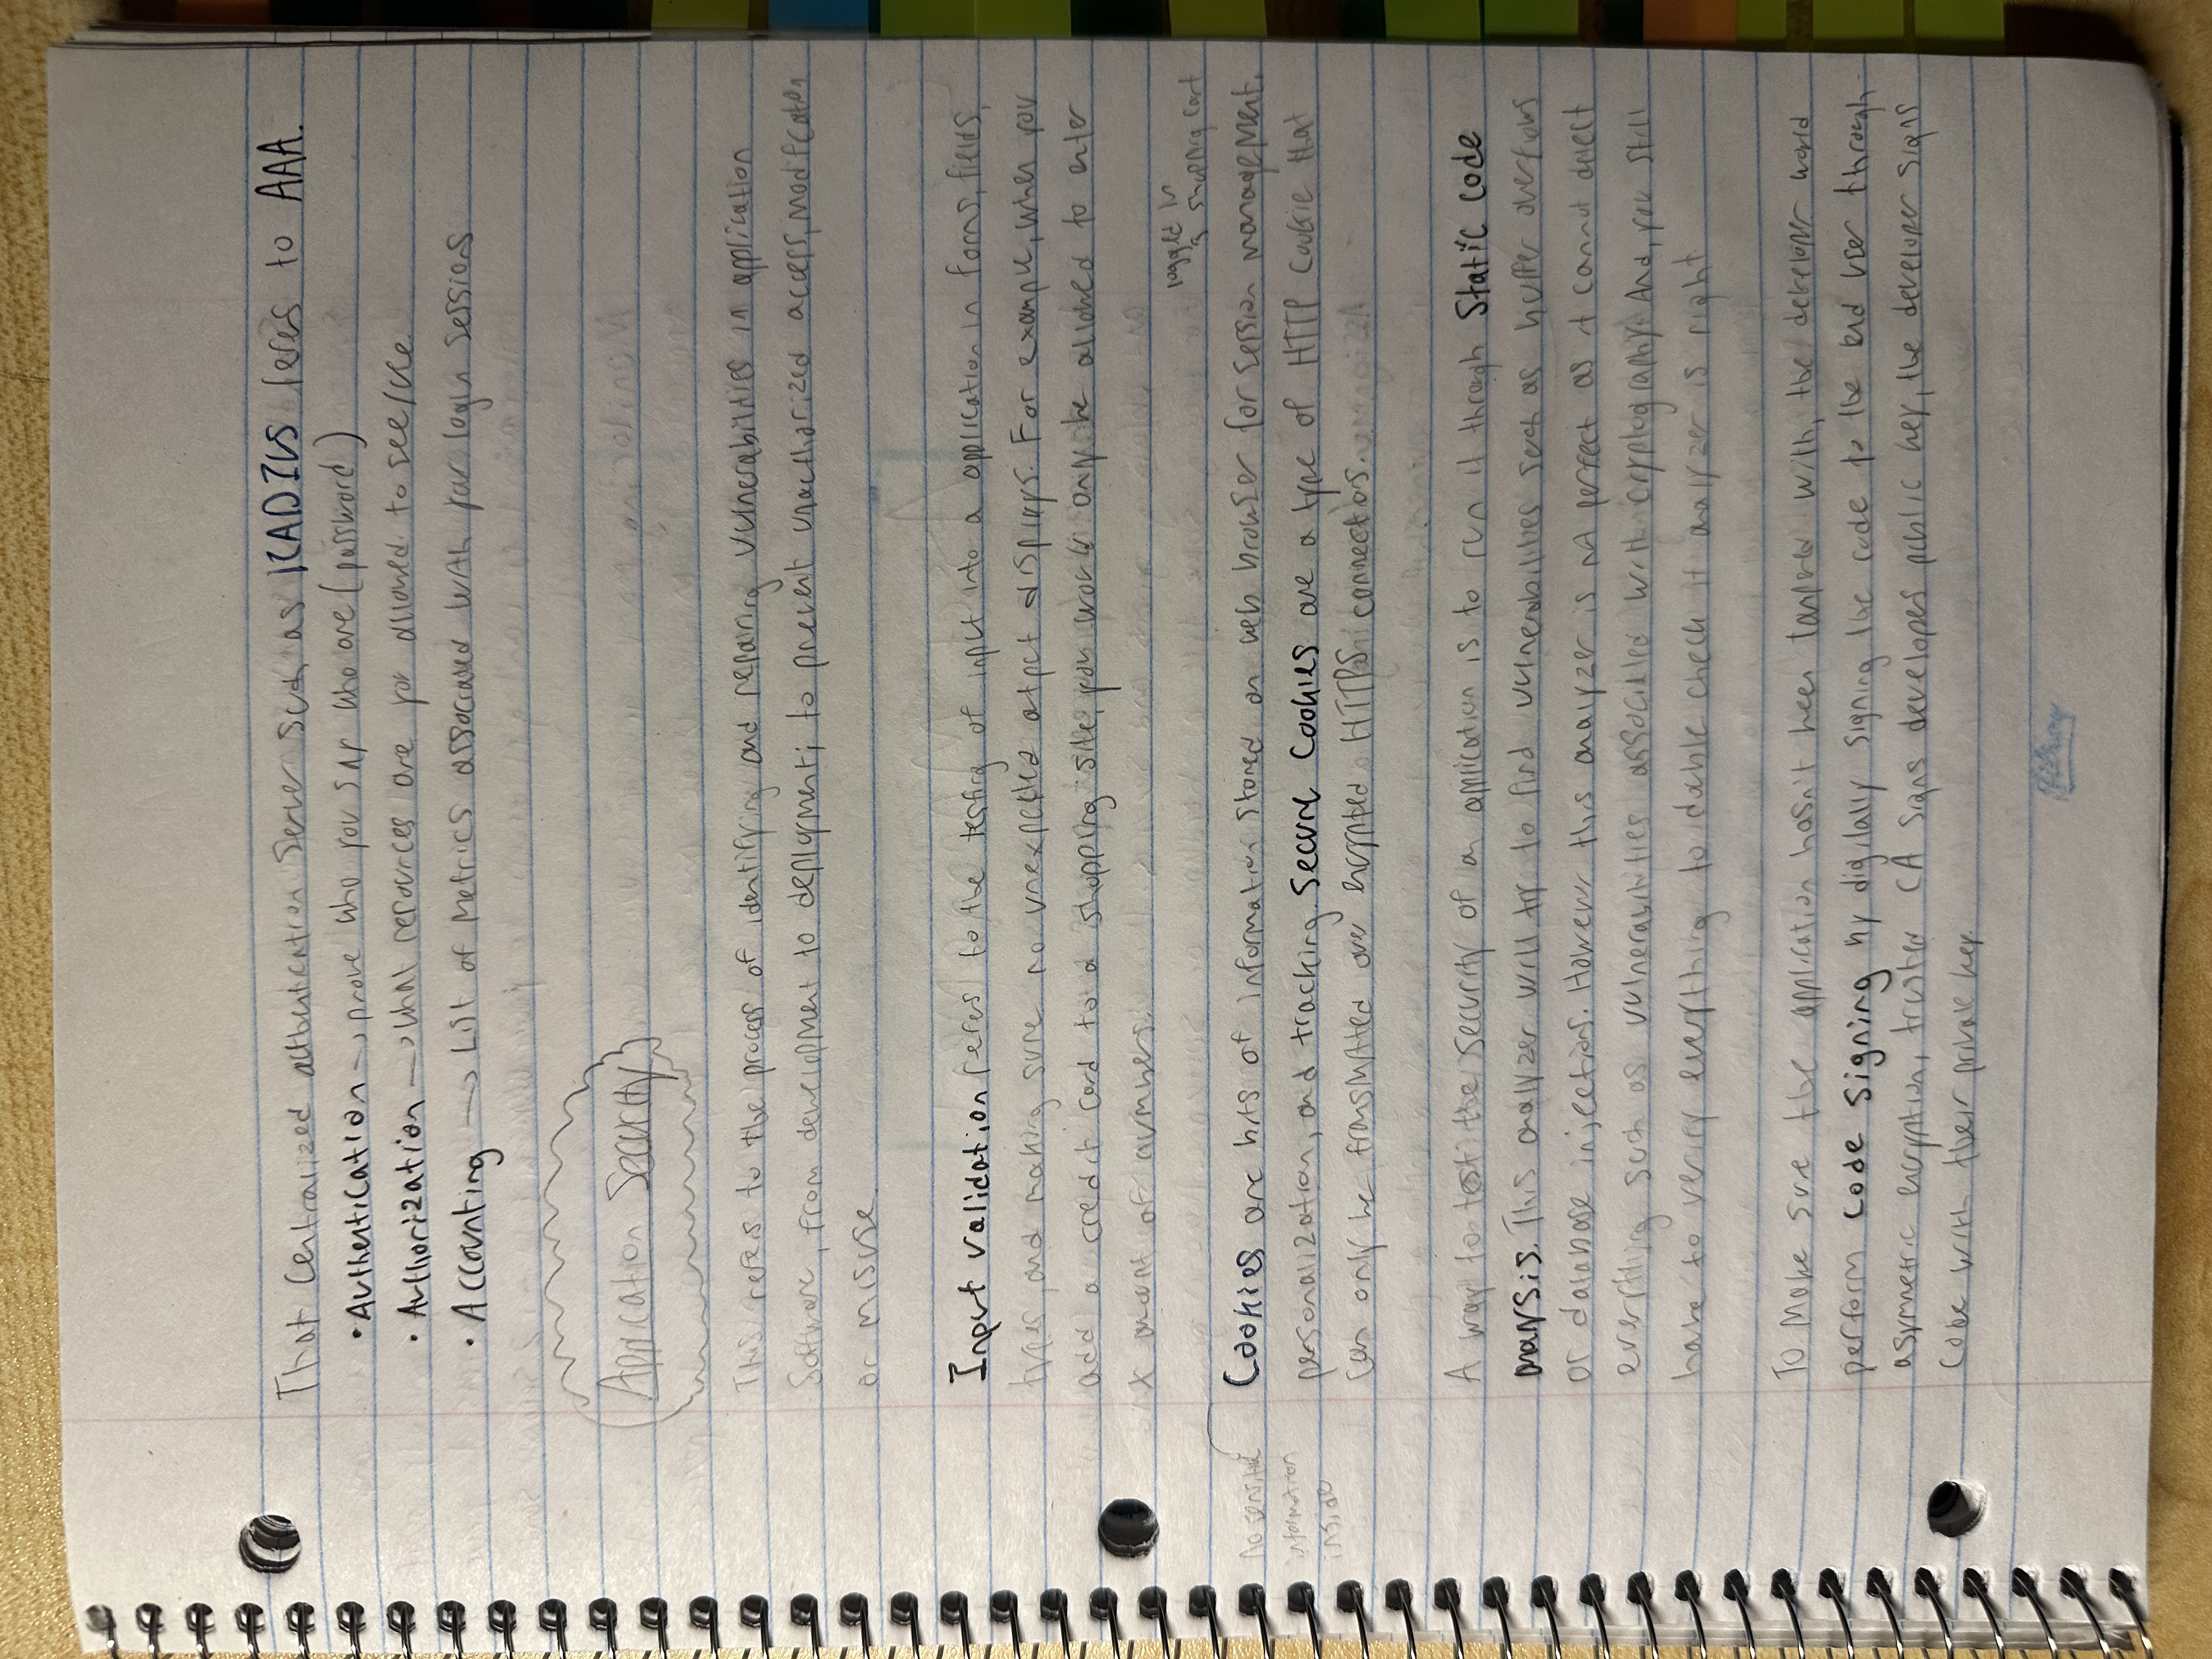 That Centralized authentication Server such as RADIUS referes to AAA.
• Authentication → prove who you say who are (password)
• Authorization → what resources are you allowed to see/use.
• Accounting → List of Metrics associated with your login sessions
Application Security
This refers to the process of identifying and repairing vulnerabilities in application
Software, from development to deployment; to prevent unauthorized access, modification
or misuse.
Input validation referes to the testing of input into a application in forms, fields,
types, and making sure no unexpected output displays. For example, when you
add a credit card to a shopping site, you would only be allowed to enter
x amount of numbers.
logged in
shopping cart
Cookies are bits of information stored on web browser for session management,
No sensitive
information
inside
personalization, and tracking. Secure Cookies are a type of HTTP Cookie that
can only be transmitted over encrypted HTTPS connections.
A way to test the security of an application is to run it through Static code
analysis. This analyzer will try to find vulnerabilities such as buffer overflows
or database injections. However this analyzer is not perfect as it cannot detect
everything such as vulnerabilities associated with cryptography. And, you still
have to verify everything to double check if analyzer is right
To Make sure the application hasn't been tampered with, the developer would
perform Code Signing by digitally signing the code to the end user through
asymmetric encryption, trusted CA signs developers public key, the developer signs
code with their private key.